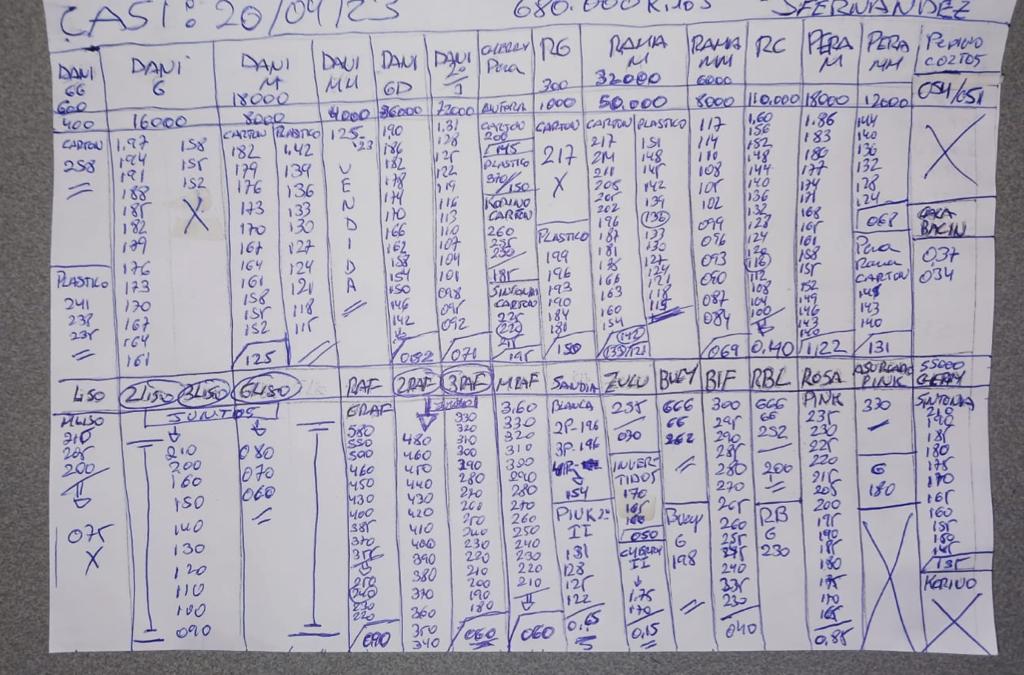 CASI: 20/04/23 680.000 Kilos SFERNANDEZ
DANI GG 600 400
CARTON
258
PLASTICO
241
238
235
DANI G
16000
1.97
194
191
188
185
182
179
176
173
170
167
164
161
158
155
152
X
DANI M
18000
8000
CARTON
182
179
176
173
170
167
164
161
158
155
152
125
PLASTICO
1.42
139
136
133
130
127
124
121
118
115
DANI MM
4000
125
'23
VENDIDA
DANI GD
36000
190
186
182
178
174
170
166
162
158
154
150
146
142
DANI
22000
1.31
128
125
122
119
116
113
110
107
104
101
098
095
092
071
CHERRY Pera
CARTON
200
PLASTICO
150
KORINO
CARTON
260
235
230
185
SINTONIA
CARTON
225
220
195
RG
300
1000
CARTON
217
X
PLASTICO
199
196
193
190
184
181
150
RAMA M
32000
50.000
CARTON
217
211
205
202
196
163
160
154
PLASTICO
151
148
145
142
139
136
133
130
127
124
121
118
115
142
RAMA MM
6000
8000
117
114
110
108
105
102
099
096
093
090
087
084
069
RC
110.000
1.60
156
152
148
144
140
136
132
128
124
120
116
112
108
104
100
0.40
PERA M
18000
1.86
183
180
177
174
171
168
165
161
158
155
152
149
146
143
140
1.22
PERA MM
12000
144
140
136
132
128
124
068
Pera
Rama
CARTON
146
143
140
131
PEPINO CORTOS
054/051
X
BACIN
037
034
LISO
MLISO
215
205
200
075
X
2LISO 3LISO
JUNTOS
210
200
160
150
140
130
120
110
100
090
6LISO
080
070
060
RAF
GRAF
580
550
500
460
450
430
400
385
370
355
250
240
230
220
090
2RAF
480
460
450
440
430
420
410
400
390
380
370
360
350
340
3RAF
330
320
310
300
290
280
270
260
250
240
230
220
210
200
190
180
060
MRAF
3.60
330
320
310
300
290
280
270
260
250
240
230
220
210
060
SANDIA
BLANCA
2P-196
3P-196
154
PINK 2ª
II
131
128
125
122
0.65
ZULU
235
INVERTIDOS
170
165
160
050
CHERRY
II
1.75
170
0,15
BUEY
666
66
262
Buey
G
198
BIF
300
295
290
285
280
270
265
260
255
245
240
235
230
040
RBL
666
66
252
200
RB
G
230
ROSA
PINK
235
230
225
220
215
205
200
195
190
185
180
175
170
165
0,85
ASURCADO
PINK
330
G
180
55000
CHERRY
SINTONIA
210
190
185
180
175
170
165
160
155
150
135
KORINO